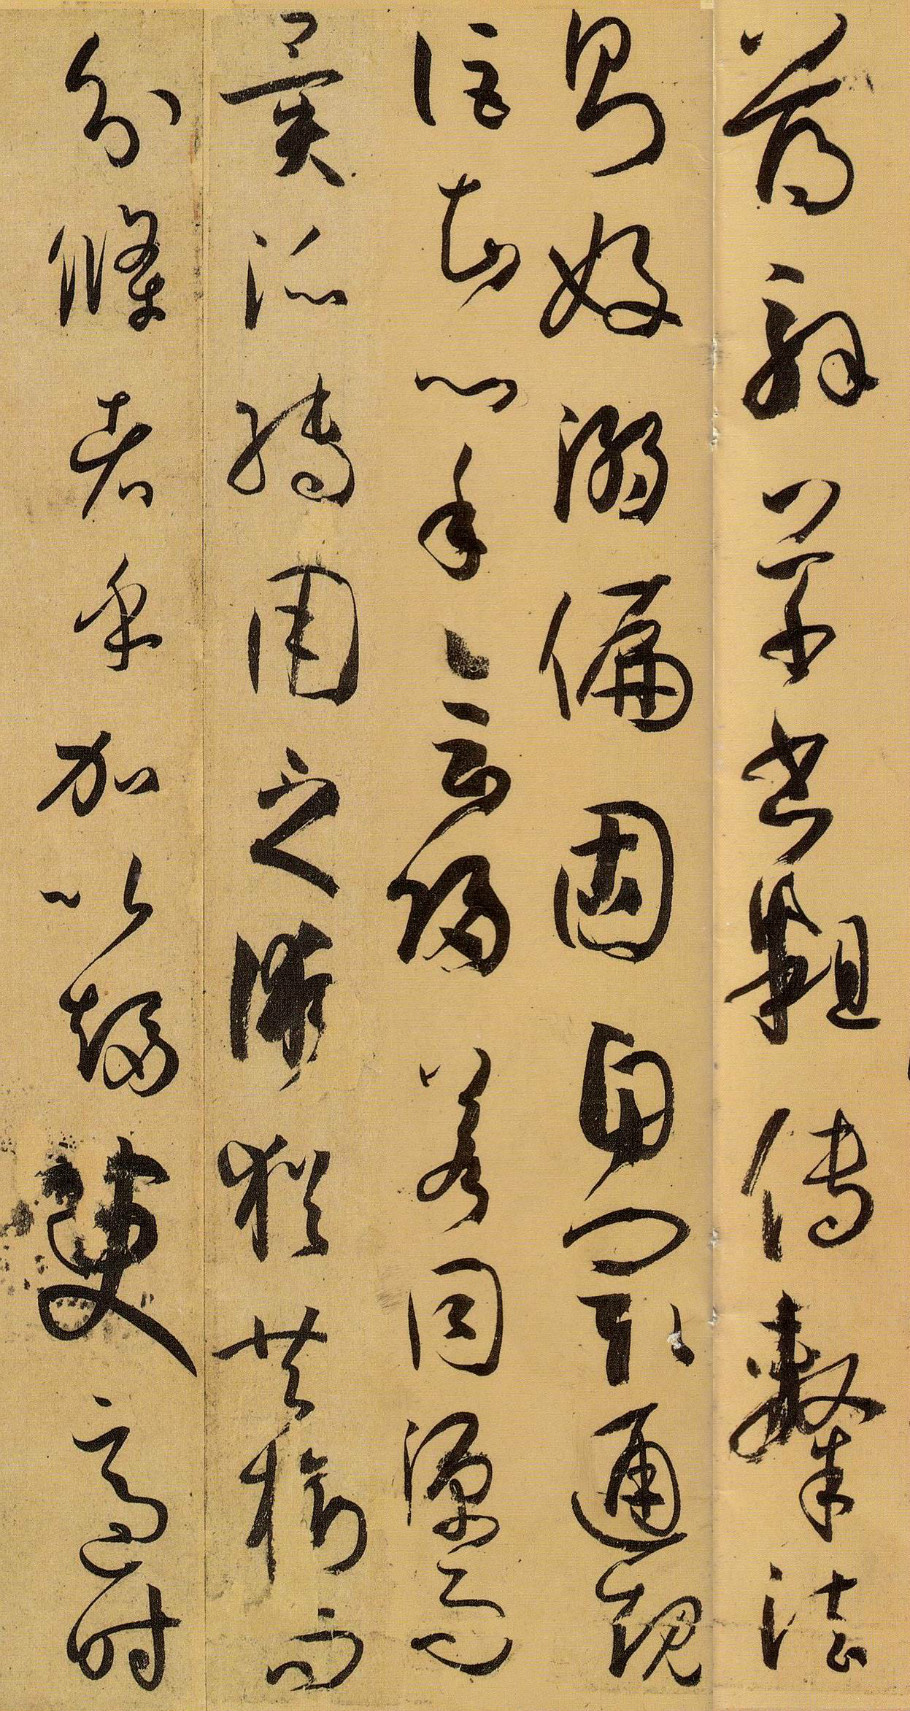 薄解草書粗傳隸法
則好溺偏固自閡通規
詎知心手會歸若同源而
異派轉用之術猶共樹而
分條者乎加以趨變適時